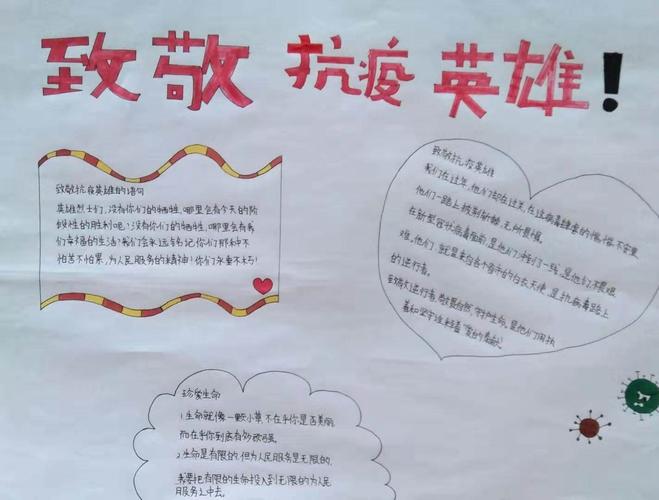 致敬 抗疫 英雄!
致敬抗疫英雄的语句
英雄烈士们,没有你们的牺牲,哪里会有今天的阶
段性的胜利呢?没有你们的牺牲,哪里会有我
们幸福的生活?我们会永远铭记你们那种不
怕苦不怕累,为人民服务的精神!你们永垂不朽!
致敬抗疫英雄
我们在过年,他们却在过关,在这病毒肆虐的惶惶不安里
他们一路上披荆斩棘,无所畏惧。
在新型冠状病毒面前,是他们冲在一线,是他们不畏艰
难,他们就是来自各个省市的白衣天使,是抗病毒路上
的逆行者。
致敬最大逆行者,敬畏自然,守护生命。是他们用执
着和坚守诠释着"爱的奉献"
珍爱生命
1.生命就像一颗小草,不在乎你是否美丽
而在乎你到底有多顽强。
2.生命是有限的,但为人民服务是无限的,
我要把有限的生命投入到无限的为人民
服务之中去。